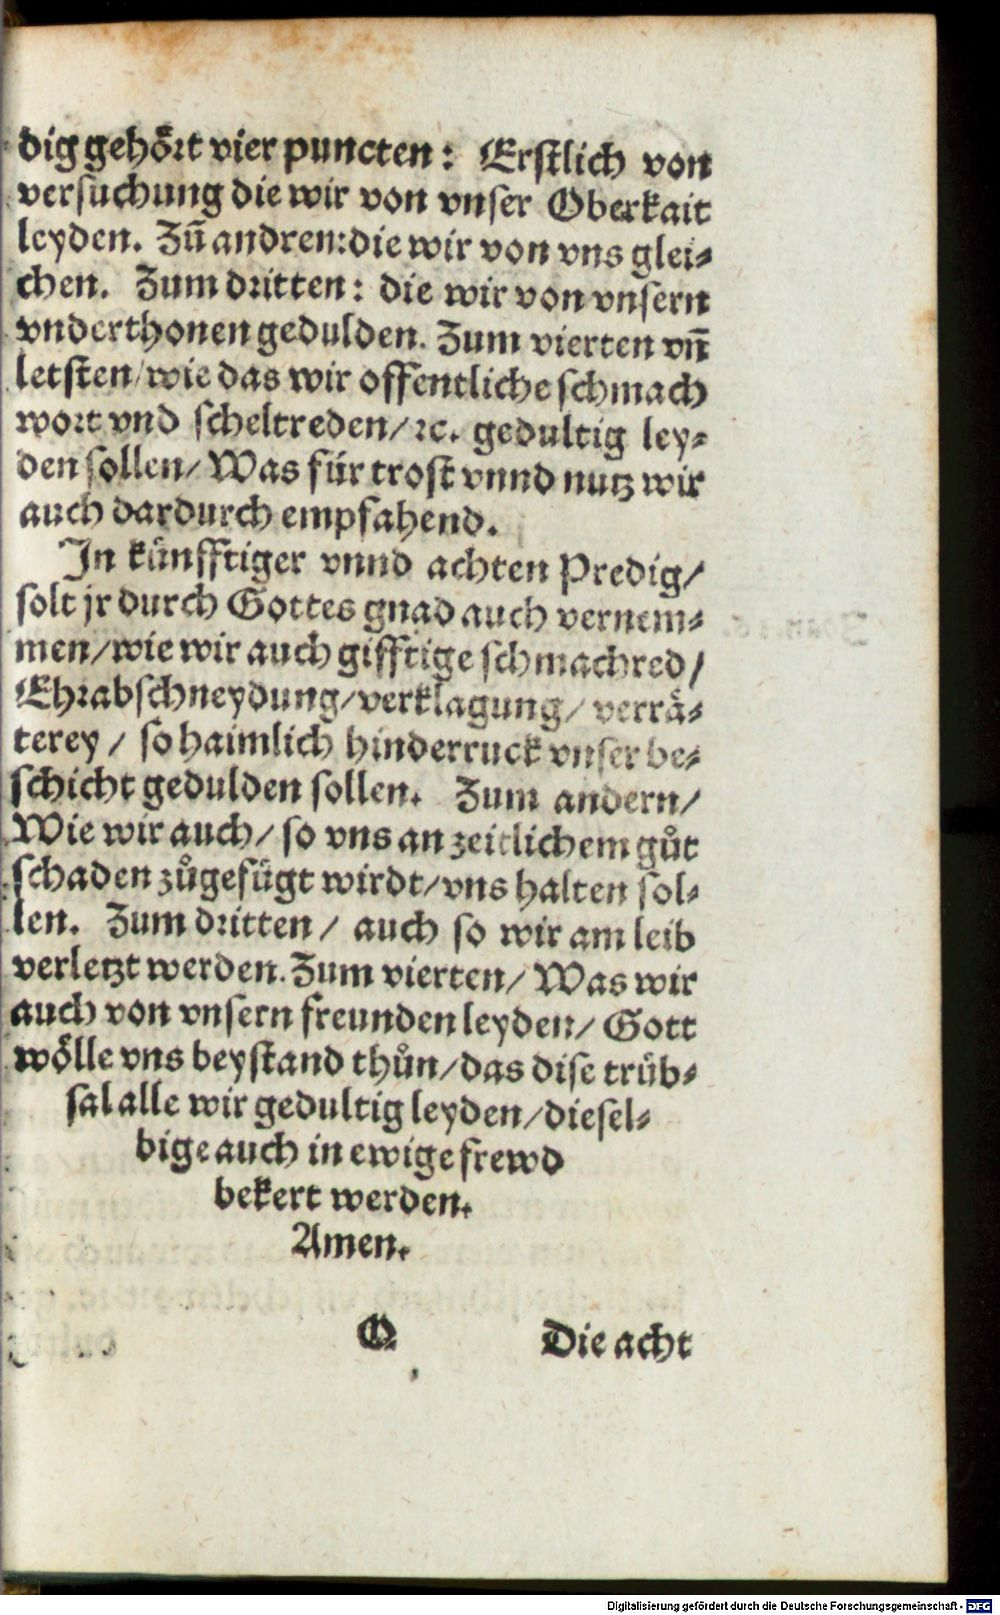 dig gehoͤrt vier puncten: Erstlich von
versuchung die wir von vnser Oberkait
leyden. Zuͦ andren: die wir von vns glei⸗
chen. Zum dritten: die wir von vnsern
vnderthonen gedulden. Zum vierten vn̄
letsten/ wie das wir offentliche schmach
wort vnd scheltreden/ ꝛc. gedultig ley⸗
den sollen/ Was für trost vnnd nutz wir
auch dardurch empfahend.
In künfftiger vnnd achten Predig/
solt jr durch Gottes gnad auch vernem⸗
men/ wie wir auch gifftige schmachred/
Ehrabschneydung/ verklagung/ verraͤ⸗
terey/ so haimlich hinderruck vnser be⸗
schicht gedulden sollen. Zum andern/
Wie wir auch/ so vns an zeitlichem guͦt
schaden zuͦgefügt wirdt/ vns halten sol⸗
len. Zum dritten/ auch so wir am leib
verletzt werden. Zum vierten/ Was wir
auch von vnsern freunden leyden/ Gott
woͤlle vns beystand thuͦn/ das dise trüb⸗
sal alle wir gedultig leyden/ diesel⸗
bige auch in ewige frewd
bekert werden.
Amen.
Q Die acht
Digitalisierung gefördert durch die Deutsche Forschungsgemeinschaft - DFG